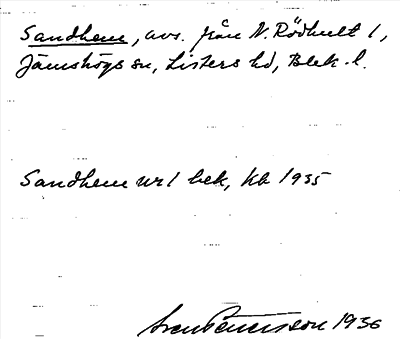 Sandhem, avs. från N. Rödhult 1,
Jämshögs sn, Listers hd, Blek. l.
Sandhem nr 1 bek, kb 1935
Sven Benson 1936